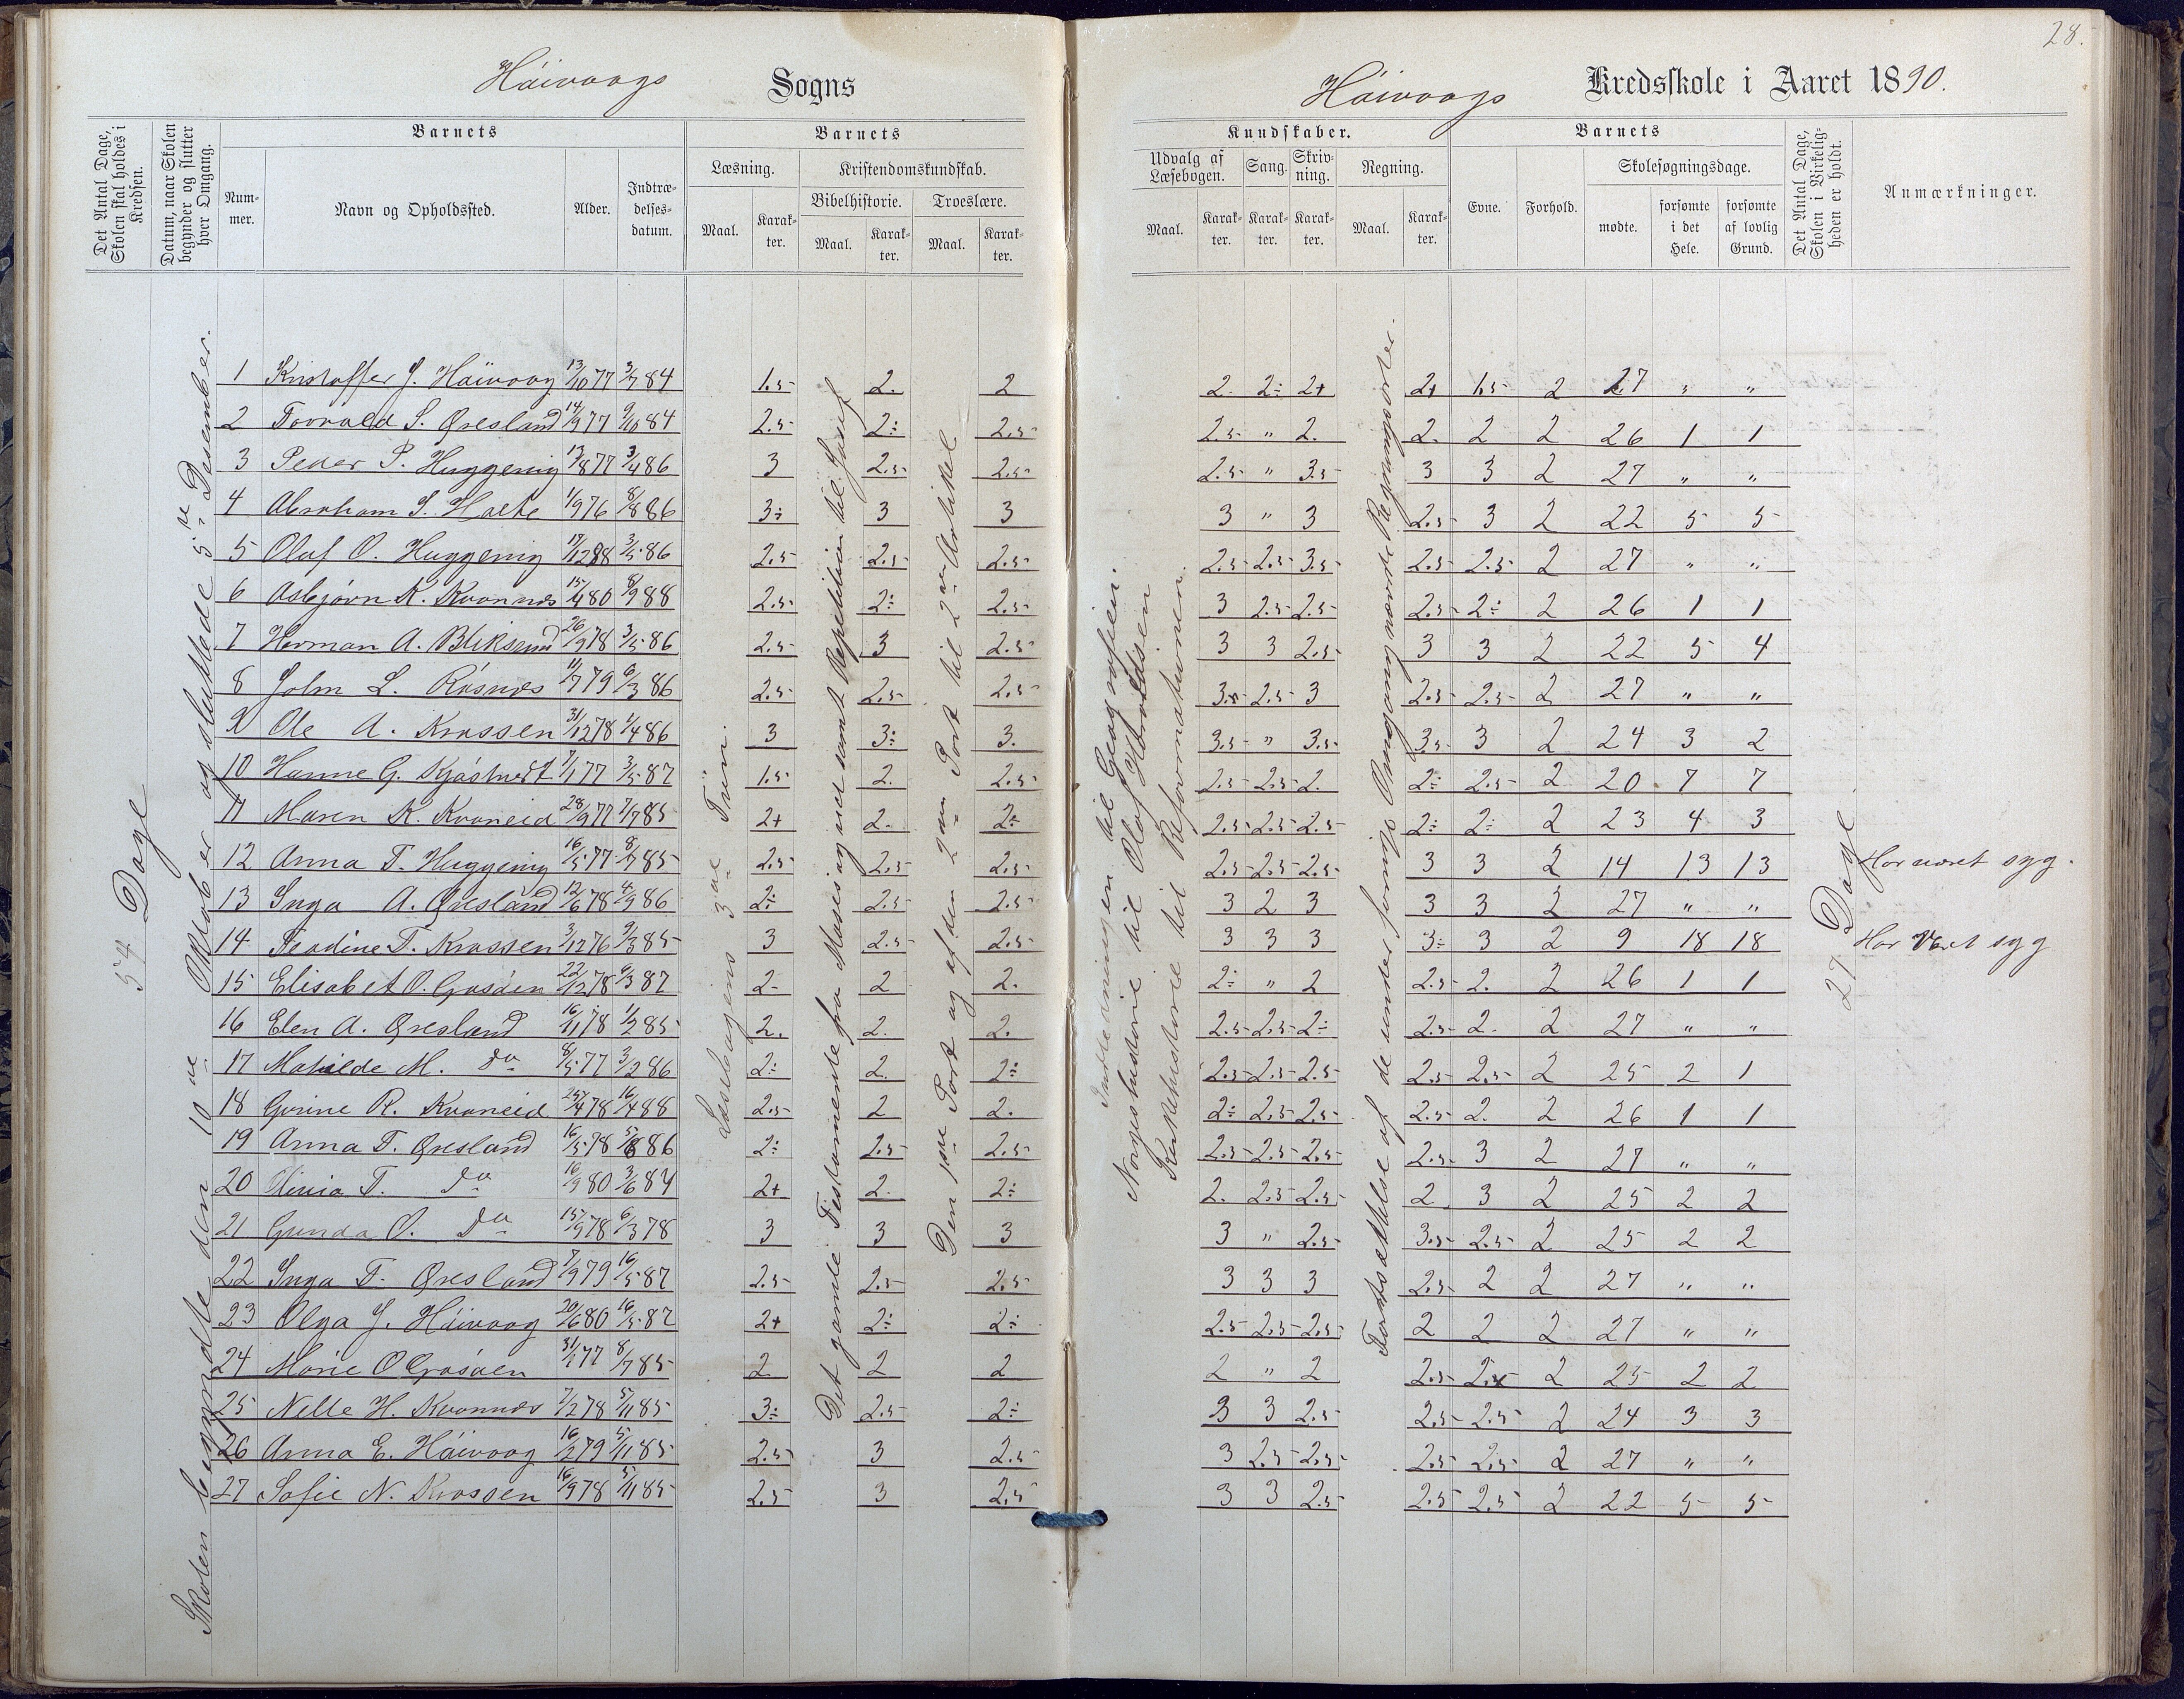 28.
Háivaags Sogns
Háivaags Kredsskole i Aaret 1890.
Det Antal Dage, Skolen skal holdes i Kredsen.
Datum, naar Skolen begynder og slutter hver Omgang.
Barnets
Nummer.
Navn og Opholdssted.
Alder.
Indtrædelsesdatum.
Barnets
Læsning.
Maal.
Karakter.
Kristendomskundskab.
Bibelhistorie.
Maal.
Karakter.
Troeslære.
Maal.
Karakter.
Kundskaber.
Udvalg af Læsebogen.
Maal.
Karakter.
Sang.
Karakter.
Skrivning.
Karakter.
Regning.
Maal.
Karakter.
Barnets
Evne.
Forhold.
Skolesøgningsdage.
mødte.
forsømte i det Hele.
forsømte af lovlig Grund.
Det Antal Dage, Skolen i Virkeligheden er holdt.
Anmærkninger.
54 Dage
Skolen begyndte den 10de Oktober og sluttede 5te Desember.
Læsebogens 3die Trin.
Det gamle Testamente fra Moses og ud samt Repetition til Josef
Den 1ste Part og af den 2den Part til 2den Artikel
Indledningen til Geografien.
Norgeshistorie til Olaf Haraldsen
Kirkehistorie til Reformationen.
Fortsættelse af de under forrige Omgang nævnte Regningsarter.
27 Dage
1 Kristoffer J. Háivaag 13/10 77 3/7 84 1.5 2. 2 2. 2÷ 2+ 2+ 1.5 2 27 " "
2 Torvald S. Øresland 14/9 77 9/10 84 2.5 2÷ 2.5 2.5 " 2. 2. 2 2 26 1 1
3 Peder P. Huggenig 13/8 77 3/4 86 3 2.5 2.5 2.5 " 3.5 3 3 2 27 " "
4 Abraham S. Holte 1/9 76 8/8 86 3÷ 3 3 3 " 3 2.5 3 2 22 5 5
5 Oluf O. Huggenig 17/12 88 3/5 86 2.5 2.5 2.5 2.5 2.5 3.5 2.5 2.5 2 27 " "
6 Asbjørn K. Kvannes 15/4 80 8/9 88 2.5 2÷ 2.5 3 2.5 2.5 2.5 2÷ 2 26 1 1
7 Herman A. Bliksund 26/9 78 3/5 86 2.5 3 2.5 3 3 2.5 3 3 2 22 5 4
8 John L. Råsnes 11/7 79 6/3 86 2.5 2.5 2.5 3. 2.5 3 2.5 2.5 2 27 " "
9 Ole A. Krossen 31/12 78 1/4 86 3 3÷ 3. 3.5 " 3.5 3.5 3 2 24 3 2
10 Hanne G. Kjøstvedt 7/1 77 3/5 87 1.5 2. 2.5 2.5 2.5 2. 2÷ 2.5 2 20 7 7
11 Maren K. Kvaneid 28/9 77 7/7 85 2+ 2. 2÷ 2.5 2.5 2.5 2÷ 2÷ 2 23 4 3
12 Anna T. Huggenig 16/5 77 8/7 85 2.5 2.5 2.5 2.5 2.5 2.5 3 3 2 14 13 13 Har været syg.
13 Inga A. Øresland 12/6 78 4/9 86 2÷ 2.5 2.5 3 2 3 3 3 2 27 " "
14 Teodine T. Krossen 3/12 76 9/3 85 3 2.5 2.5 3 3 3 3÷ 3 2 9 18 18 Har været syg
15 Elisabet O. Gåsåen 22/12 78 6/3 87 2- 2 2. 2÷ " 2 2.5 2. 2 26 1 1
16 Elen A. Øresland 16/11 78 1/2 85 2. 2. 2. 2.5 2.5 2÷ 2.5 2. 2 27 " "
17 Matilde M. do 8/5 77 3/2 86 2÷ 2. 2÷ 2.5 2.5 2.5 2.5 2.5 2 25 2 1
18 Gurine R. Kvaneid 25/4 78 16/4 88 2.5 2 2. 2÷ 2.5 2.5 2.5 2. 2 26 1 1
19 Anna T. Øresland 16/5 78 5/8 86 2÷ 2.5 2.5 2.5 2.5 2.5 2.5 3 2 27 " "
20 T. do 16/9 80 3/6 84 2+ 2. 2÷ 2. 2.5 2.5 2 3 2 25 2 2
21 Gunda O. do 15/9 78 6/3 78 3 3 3 3 " 2.5 3.5 2.5 2 25 2 2
22 Inga T. Øresland 7/9 79 16/5 87 2.5 2.5 2.5 3 3 3 2.5 2 2 27 " "
23 Olga J. Háivaag 20/6 80 16/5 87 2+ 2÷ 2÷ 2.5 2.5 2.5 2 2 2 27 " "
24 Marie O Gåsåen 31/1 77 8/7 85 2 2 2 2 " 2 2.5 2. 2 25 2 2
25 Nelle H. Kvannes 7/2 78 5/11 85 3÷ 2.5 2÷ 3 3 2.5 2.5 2.5 2 24 3 3
26 Anna E. Háivaag 16/2 79 5/11 85 2.5 3 2.5 3 2.5 2.5 2.5 2.5 2 27 " "
27 Sofie N. Krossen 16/9 78 5/11 85 2.5 3 2.5 3 3 2.5 2.5 2.5 2 22 5 5